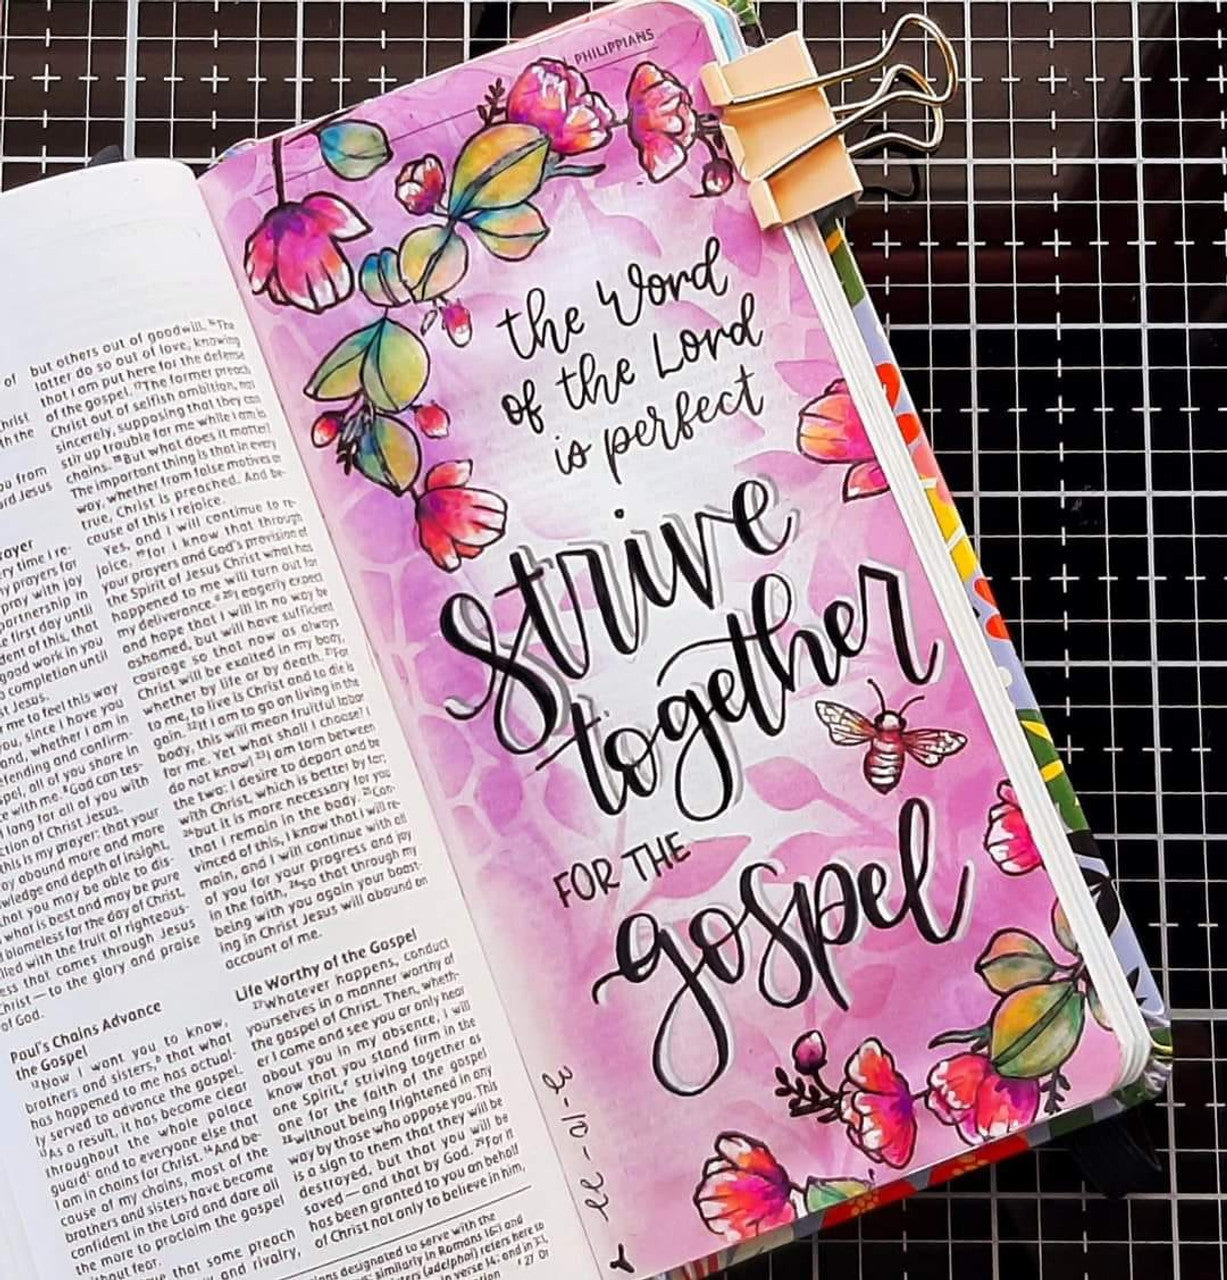 PHILIPPIANS
the Word
of the Lord
is perfect
Strive
together
FOR THE
gospel
of
Christ
th the
u from
rd Jesus
rayer
ry time I re-
y prayers for
pray with joy
artnership in
e first day until
dent of this, that
good work in you
o completion until
st Jesus.
me to feel this way
you, since I have you
and, whether I am in
fending and confirm-
spel, all of you share in
with me. ⁸God can tes-
I long for all of you with
ction of Christ Jesus.
this is my prayer: that your
ay abound more and more
wledge and depth of insight,
that you may be able to dis-
what is best and may be pure
blameless for the day of Christ,
lled with the fruit of righteous-
ess that comes through Jesus
Christ—to the glory and praise
of God.
Paul's Chains Advance
the Gospel
¹²Now I want you to know,
brothers and sisters,ᵇ that what
has happened to me has actual-
ly served to advance the gospel.
¹³As a result, it has become clear
throughout the whole palace
guardᶜ and to everyone else that
I am in chains for Christ. ¹⁴And be-
cause of my chains, most of the
brothers and sisters have become
confident in the Lord and dare all
the more to proclaim the gospel
without fear.
that some preach
and rivalry,
but others out of goodwill. ¹⁶The
latter do so out of love, knowing
that I am put here for the defense
of the gospel. ¹⁷The former preach
Christ out of selfish ambition, not
sincerely, supposing that they can
stir up trouble for me while I am in
chains. ¹⁸But what does it matter?
The important thing is that in every
way, whether from false motives or
true, Christ is preached. And be-
cause of this I rejoice.
Yes, and I will continue to re-
joice, ¹⁹for I know that through
your prayers and God's provision of
the Spirit of Jesus Christ what has
happened to me will turn out for
my deliverance. ²⁰I eagerly expect
and hope that I will in no way be
ashamed, but will have sufficient
courage so that now as always
Christ will be exalted in my body,
whether by life or by death. ²¹For
to me, to live is Christ and to die is
gain. ²²If I am to go on living in the
body, this will mean fruitful labor
for me. Yet what shall I choose? I
do not know! ²³I am torn between
the two: I desire to depart and be
with Christ, which is better by far;
²⁴but it is more necessary for you
that I remain in the body. ²⁵Con-
vinced of this, I know that I will re-
main, and I will continue with all
of you for your progress and joy
in the faith, ²⁶so that through my
being with you again your boast-
ing in Christ Jesus will abound on
account of me.
Life Worthy of the Gospel
²⁷Whatever happens, conduct
yourselves in a manner worthy of
the gospel of Christ. Then, wheth-
er I come and see you or only hear
about you in my absence, I will
know that you stand firm in the
one Spirit, striving together as
one for the faith of the gospel
²⁸without being frightened in any
way by those who oppose you. This
is a sign to them that they will be
destroyed, but that you will be
saved—and that by God. ²⁹For it
has been granted to you on behalf
of Christ not only to believe in him,
designated to serve with the
similarly in Romans 16:1 and
(adelphoi) refers here to
in verse 14; and in 3:1,
27 Or